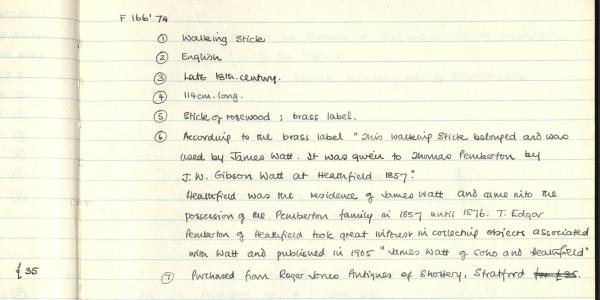 F 166' 74
① Walking Stick
② English
③ Late 18th. century.
④ 114cm. long.
⑤ Stick of rosewood ; brass label.
⑥ According to the brass label "This walking stick belonged and was
used by James Watt. It was given to Thomas Pemberton by
J.W. Gibson Watt at Heathfield 1857."
Heathfield was the residence of James Watt and came into the
possession of the Pemberton family in 1857 until 1876. T. Edgar
Pemberton of Heathfield took great interest in collecting objects associated
with Watt and published in 1905 "James Watt of Soho and Heathfield"
£35 ⑦ Purchased from Roger Jones Antiques of Shottery, Stratford for £35.